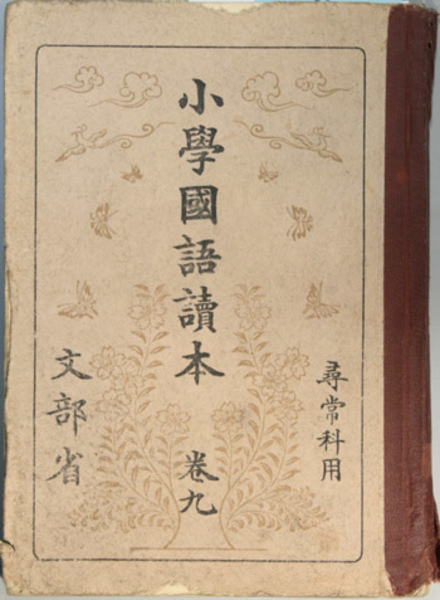 尋常科用
小學國語讀本 卷九
文部省